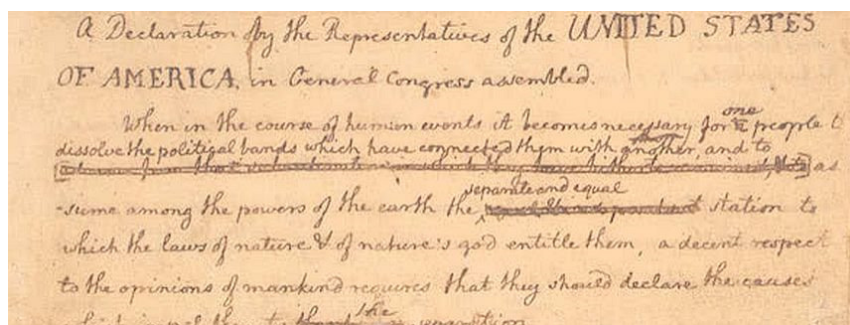 A Declaration by the Representatives of the UNITED STATES
OF AMERICA, in General Congress assembled.
When in the course of human events it becomes necessary for one people to
dissolve the political bands which have connected them with another, and to
as
-sume among the powers of the earth the separate and equal station to
which the laws of nature & of nature's god entitle them, a decent respect
to the opinions of mankind requires that they should declare the causes
the separation